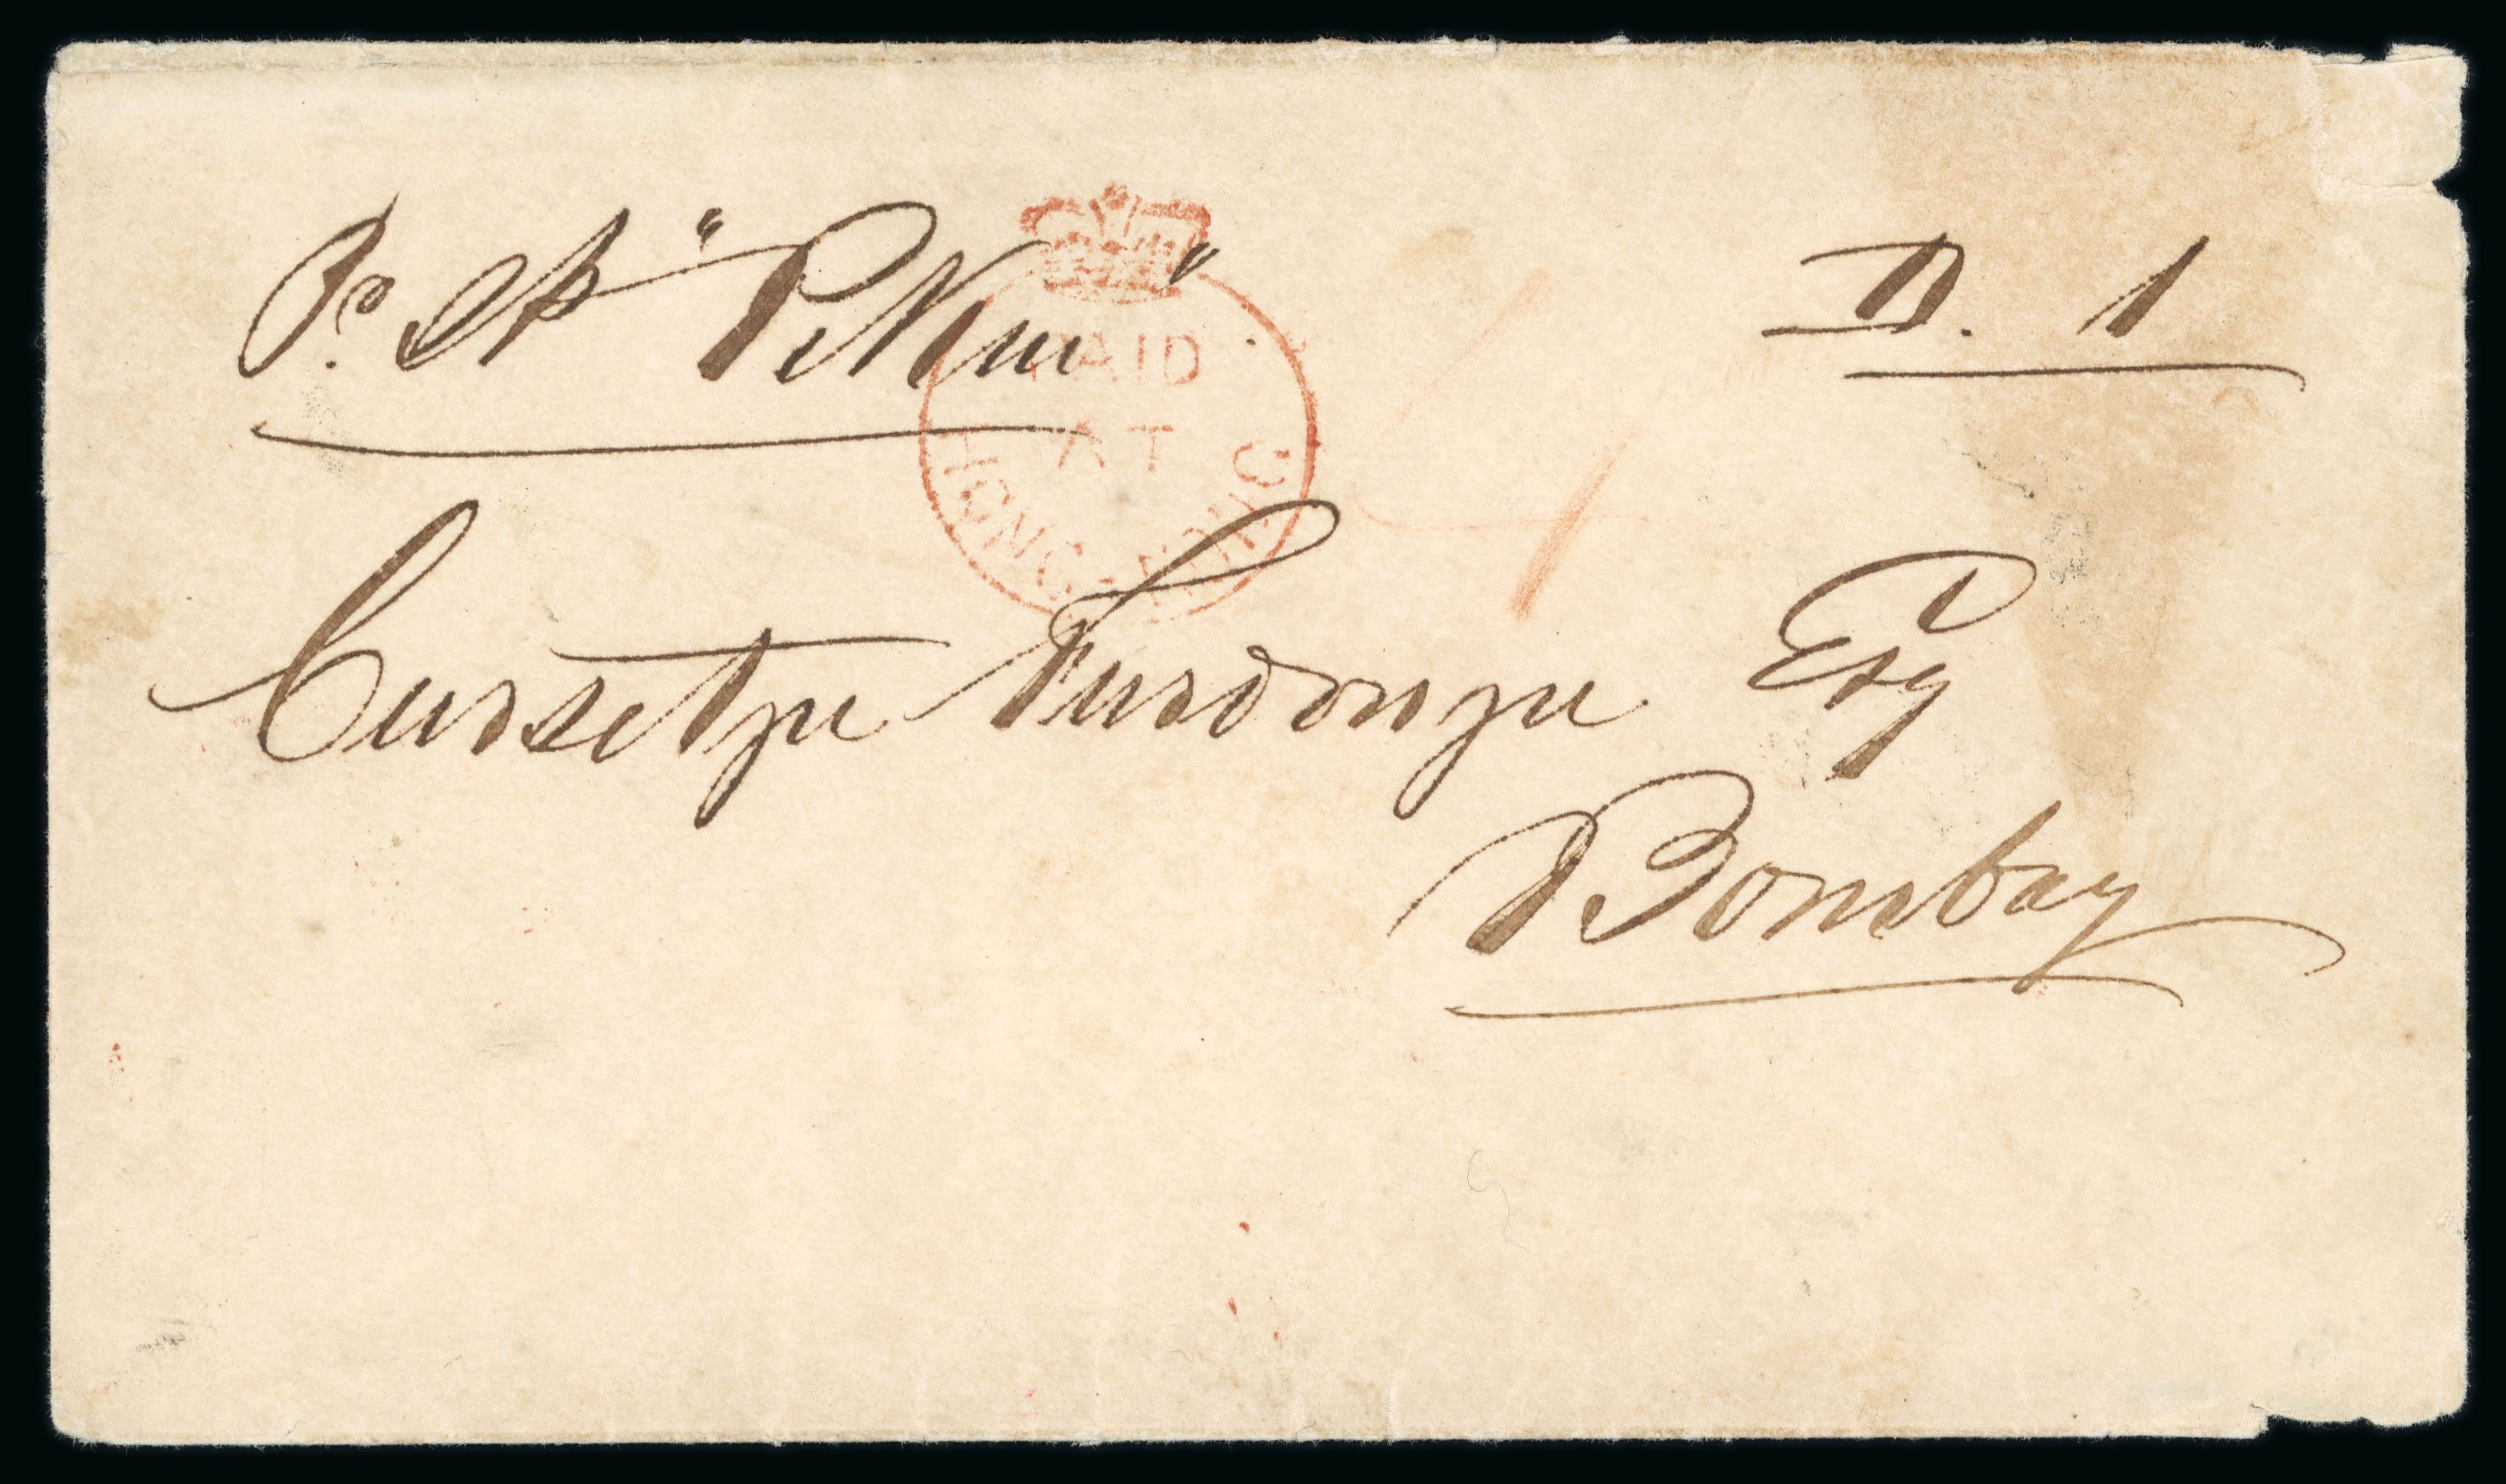 Pr. Str "Pekin"
D. 1
PAID
AT
HONG-KONG
Cursetjee Furdonjee Esq
Bombay